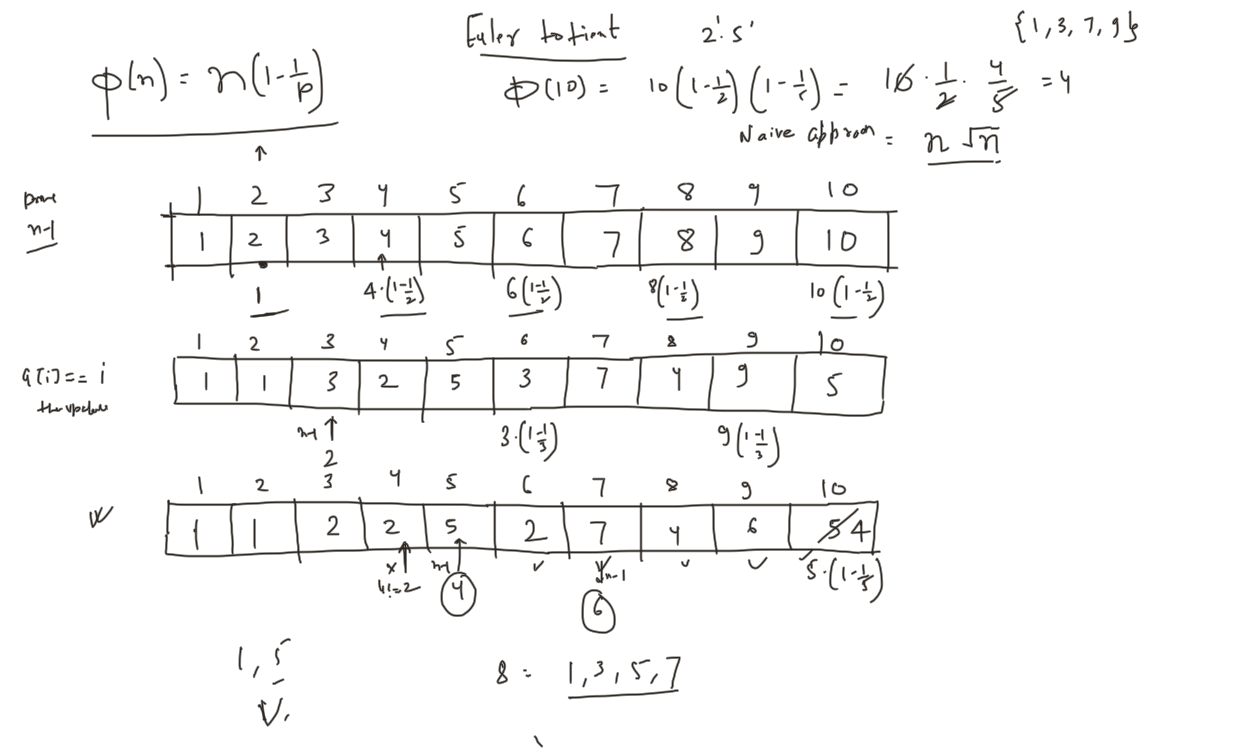 Euler totient 2¹·5¹ {1, 3, 7, 9}
φ(n) = n(1-1/p)
φ(10) = 10(1-1/2)(1-1/5) = 10 · 1/2 · 4/5 = 4
Naive approach = n√n
↑
1 2 3 4 5 6 7 8 9 10
n-1
1 2 3 4 5 6 7 8 9 10
1 4·(1-1/2) 6(1-1/2) 8(1-1/2) 10(1-1/2)
1 2 3 4 5 6 7 8 9 10
a[i]== i 1 1 3 2 5 3 7 4 9 5
n-1 ↑ 3·(1-1/3) 9(1-1/3)
2
1 2 3 4 5 6 7 8 9 10
1 1 2 2 5 2 7 4 6 5 4
x n-1 n-1 5·(1-1/5)
4!=2 4 6
1, 5 8 = 1, 3, 5, 7